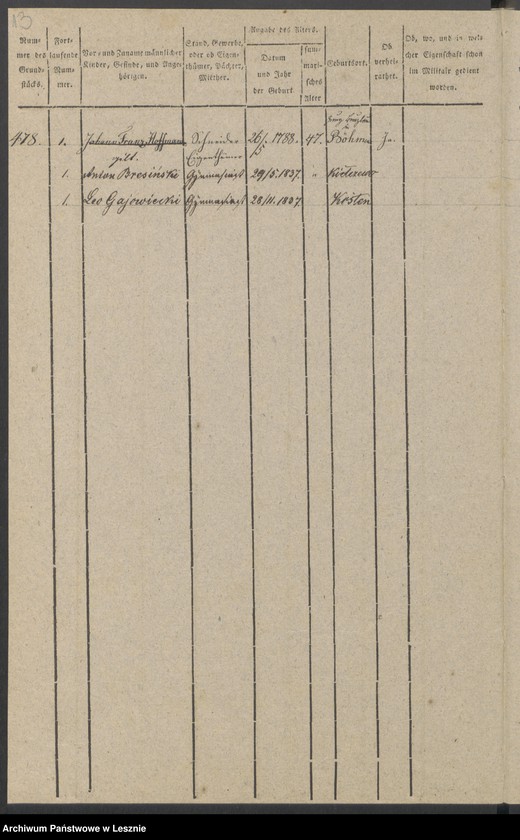 13
Num-
mer des
Grund-
stücks.
Fort-
laufende
Num-
mer.
Vor- und Zuname männlicher
Kinder, Gesinde, und Ange-
hörigen.
Stand, Gewerbe,
oder ob Eigen-
thümer, Pächter,
Miether.
Angabe des Alters.
Datum
und Jahr
der Geburt
sum-
mari-
sches
Alter
Geburtsort.
Ob
verhei-
rathet.
Ob, wo, und in wel-
cher Eigenschaft schon
im Militair gedient
worden.
478. 1. Johann Franz Hoffmann Schneider 26/5. 1788. 47. Böhmen Ja.
Eigenthümer
1. Anton Bresinski Gymnasiast 29/5. 1837. "
1. Leo Gajowiecki Gymnasiast 28/11. 1837. Kosten
Archiwum Państwowe w Lesznie